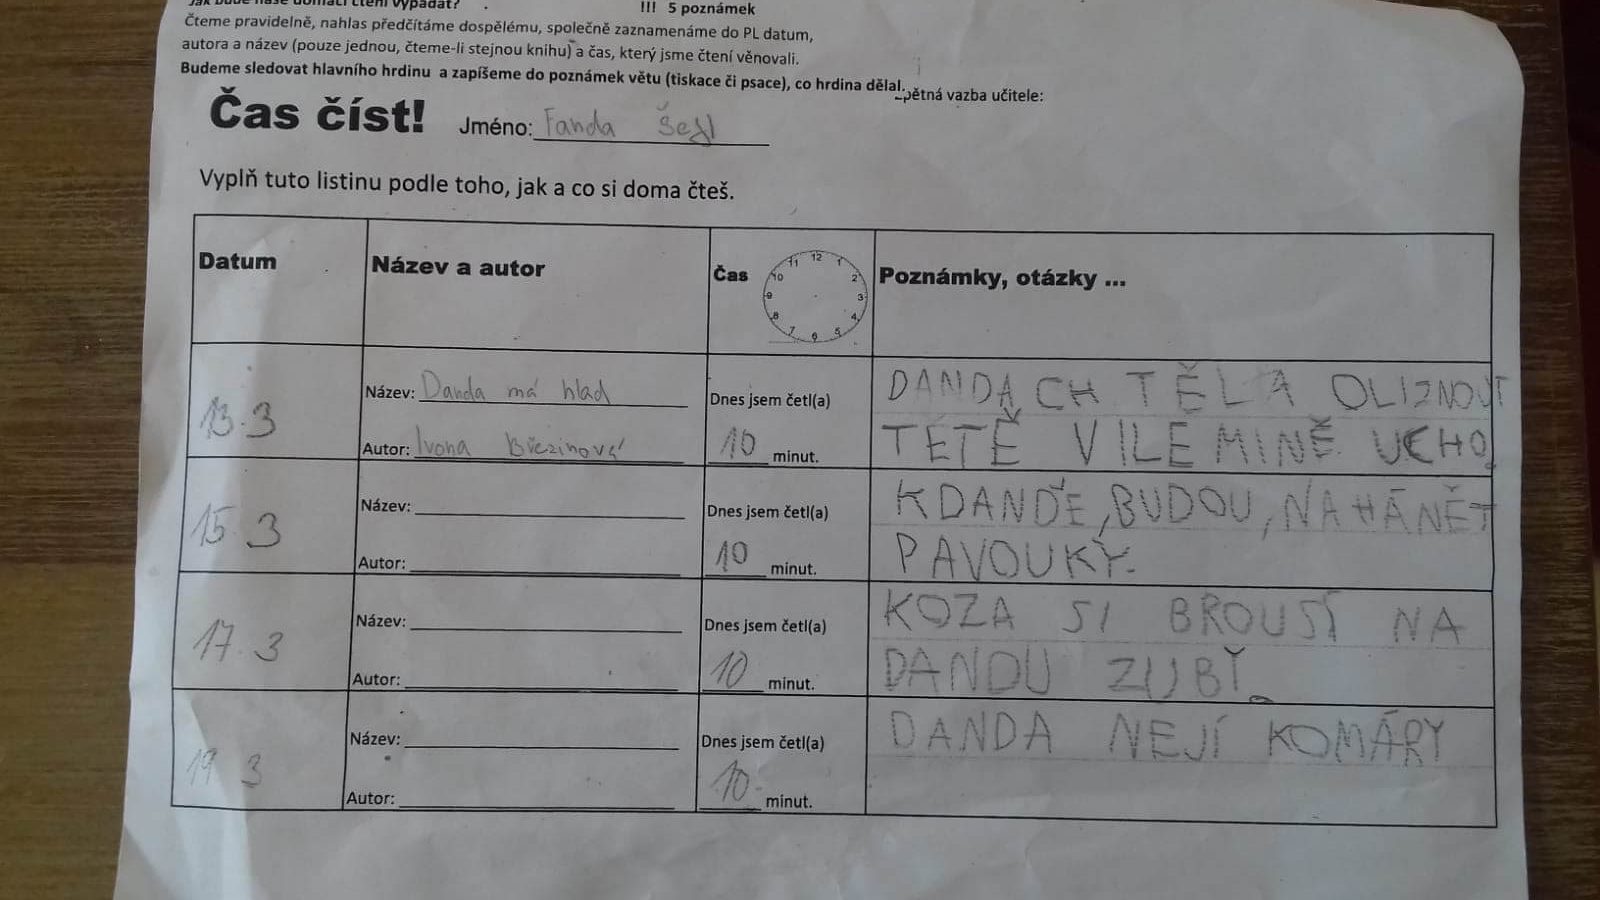 Jak bude naše domácí čtení vypadat?
!!! 5 poznámek
Čteme pravidelně, nahlas předčítáme dospělému, společně zaznamenáme do PL datum,
autora a název (pouze jednou, čteme-li stejnou knihu) a čas, který jsme čtení věnovali.
Budeme sledovat hlavního hrdinu a zapíšeme do poznámek větu (tiskace či psace), co hrdina dělal.
zpětná vazba učitele:
Čas číst! Jméno: Fanda
Vyplň tuto listinu podle toho, jak a co si doma čteš.
Datum
Název a autor
Čas
12 1 2 3 4 5 6 7 8 9 10 11
Poznámky, otázky ...
13.3
Název: Danda má hlad
Autor: Ivona Březinová
Dnes jsem četl(a)
10 minut.
DANDA CHTĚLA OLIZNOUT
TETĚ VILEMINĚ UCHO.
15.3
Název:
Autor:
Dnes jsem četl(a)
10 minut.
K DANDĚ, BUDOU, NAHÁNĚT
PAVOUKY.
17.3
Název:
Autor:
Dnes jsem četl(a)
10 minut.
KOZA SI BROUSÍ NA
DANDU ZUBY.
19 3
Název:
Autor:
Dnes jsem četl(a)
10 minut.
DANDA NEJÍ KOMÁRY